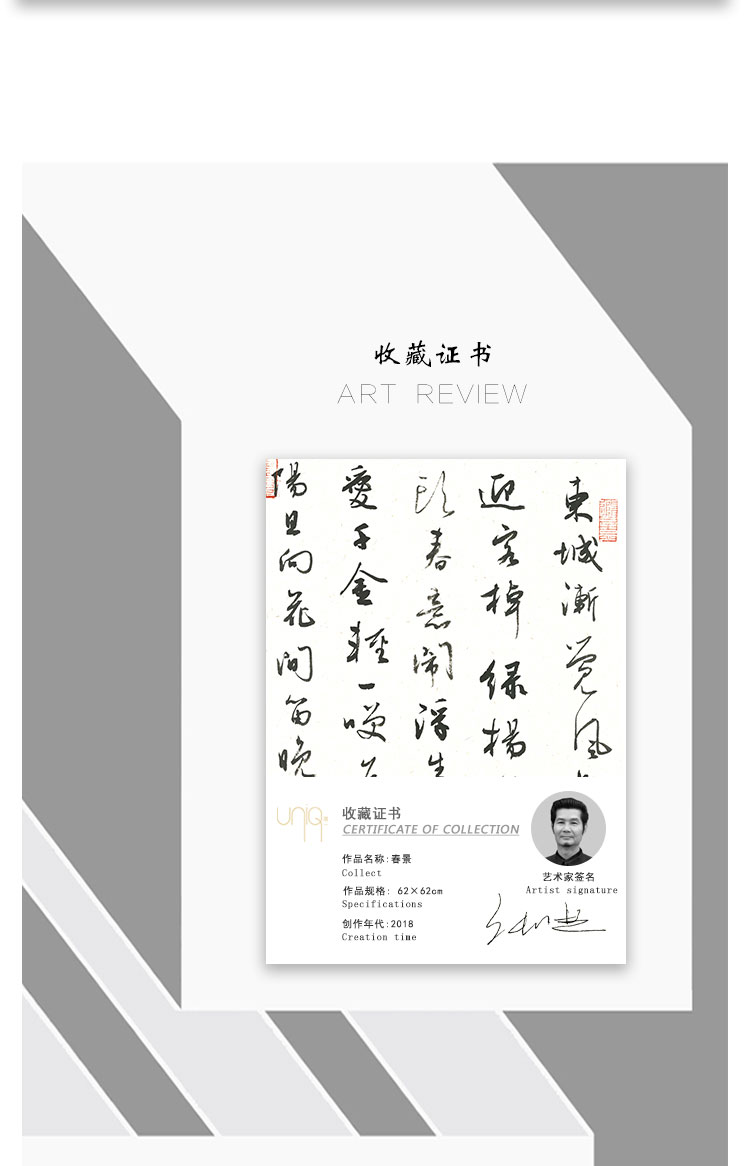 收藏证书
ART REVIEW
東城漸覺風
迎客棹綠楊
頭春意鬧浮生
愛千金輕一笑
陽且向花間留晚
UNIQ
收藏证书
CERTIFICATE OF COLLECTION
作品名称:春景
Collect
作品规格: 62×62cm
Specifications
创作年代:2018
Creation time
艺术家签名
Artist signature